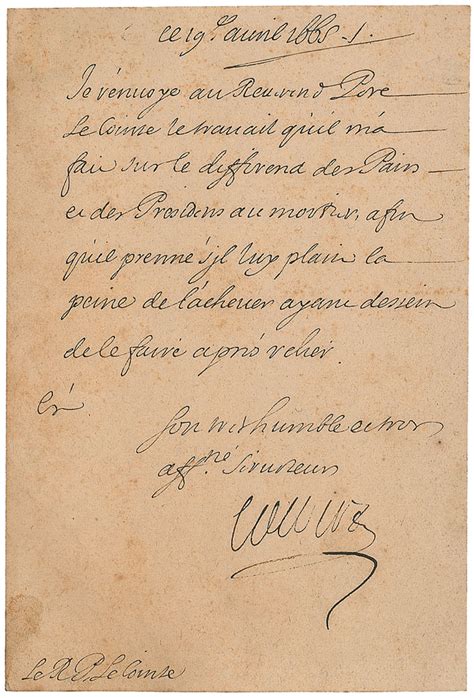 ce 19e auril 1665.
Je rénuoye au Reuerend Pere
Le Cointe le trauail qu'il m'a
fait sur le differend des Pairs
et des Presidens au mortier, afin
qu'il prenne s'jl luy plaist la
peine de l'acheuer ayant dessein
de le faire
son tres humble et tres
affné. Seruiteur
Le R. P. Le Cointe